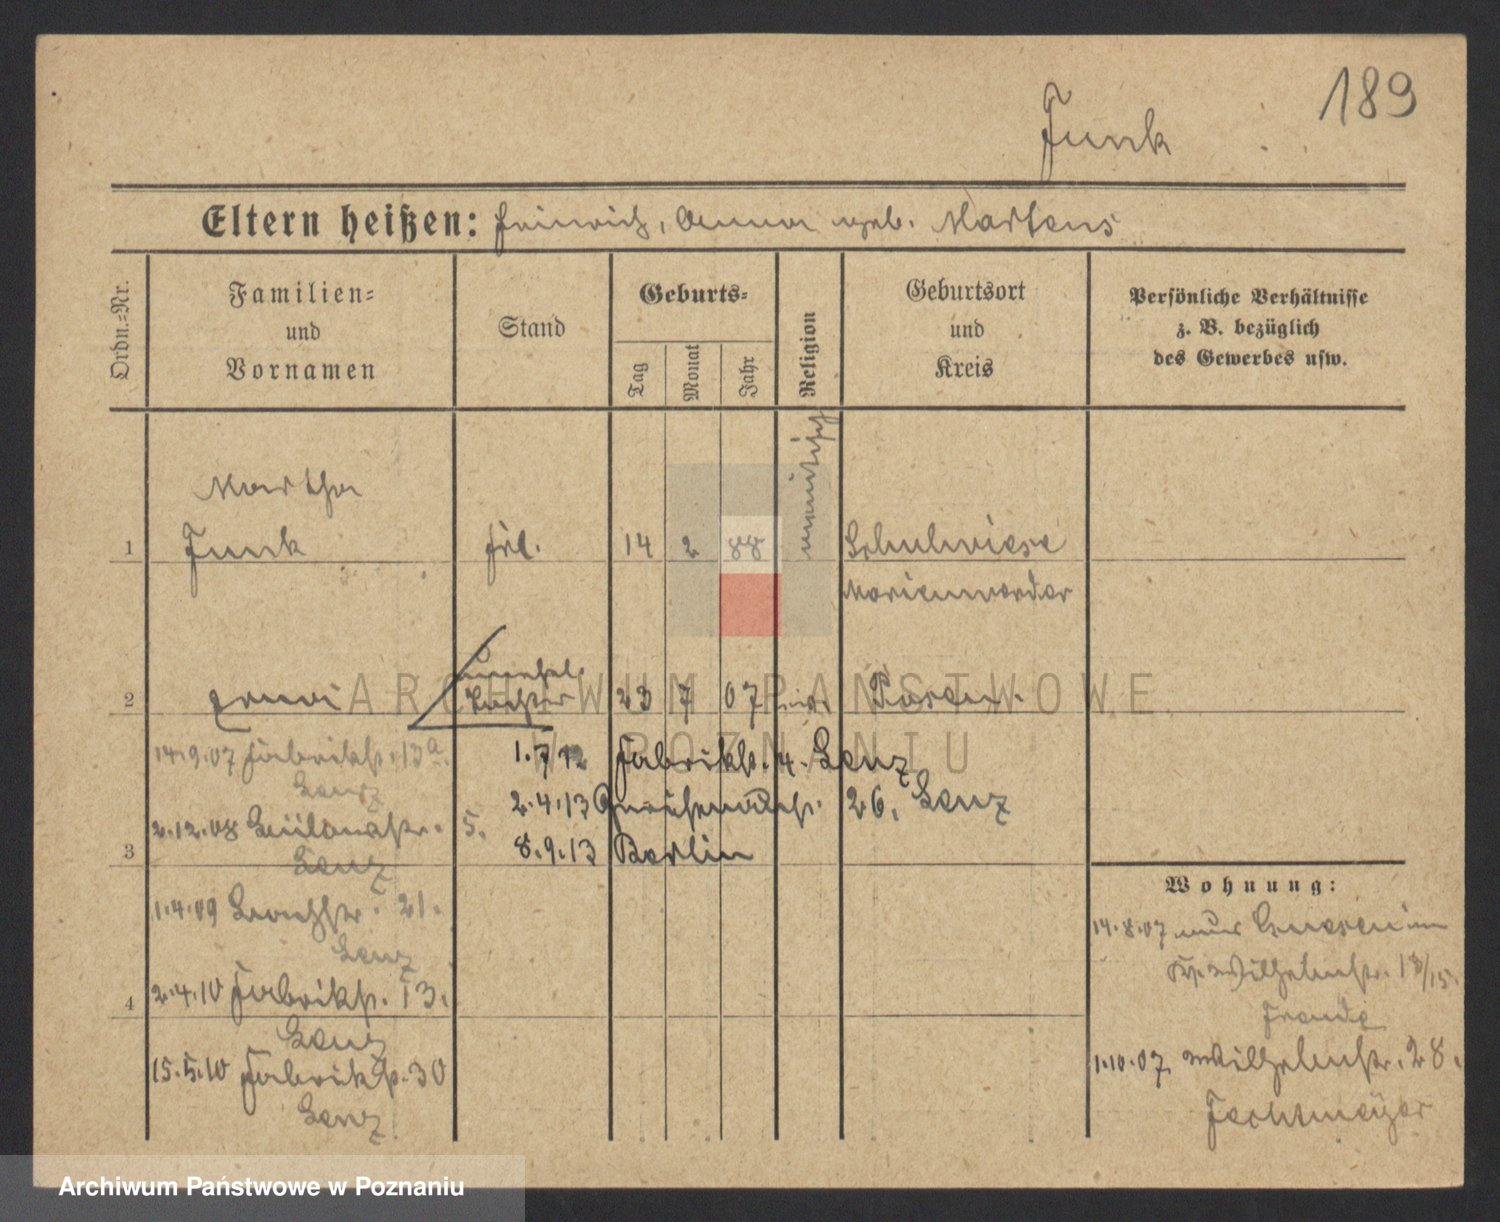 189
Funk
Eltern heißen: Heinrich, Anna geb. Martens
Ordn.-Nr.
Familien-
und
Vornamen
Stand
Geburts-
Tag
Monat
Jahr
Religion
Geburtsort
und
Kreis
Persönliche Verhältnisse
z. B. bezüglich
des Gewerbes usw.
Martha
1 Funk Frl. 14 2 88 Schulwiese
Marienwerder
2 23 7 07 Posen.
ARCHIWUM PAŃSTWOWE
W POZNANIU
14.9.07 Fabrikstr. 13a.
Lenz
1.7 12 Fabrikstr. 4. Lenz
2.4.13 26, Lenz
2.12.08 5.
Lenz
8.9.13 Berlin
3
1.4.09 21.
Lenz
2.4.10 Fabrikstr. 13.
4
Lenz
15.5.10 Fabrikstr. 30
Lenz
Wohnung:
14.8.07 aus Gnesen in
Wilhelmstr. 13/15.
1.10.07 Wilhelmstr. 28.
Fechtmeyer
Archiwum Państwowe w Poznaniu